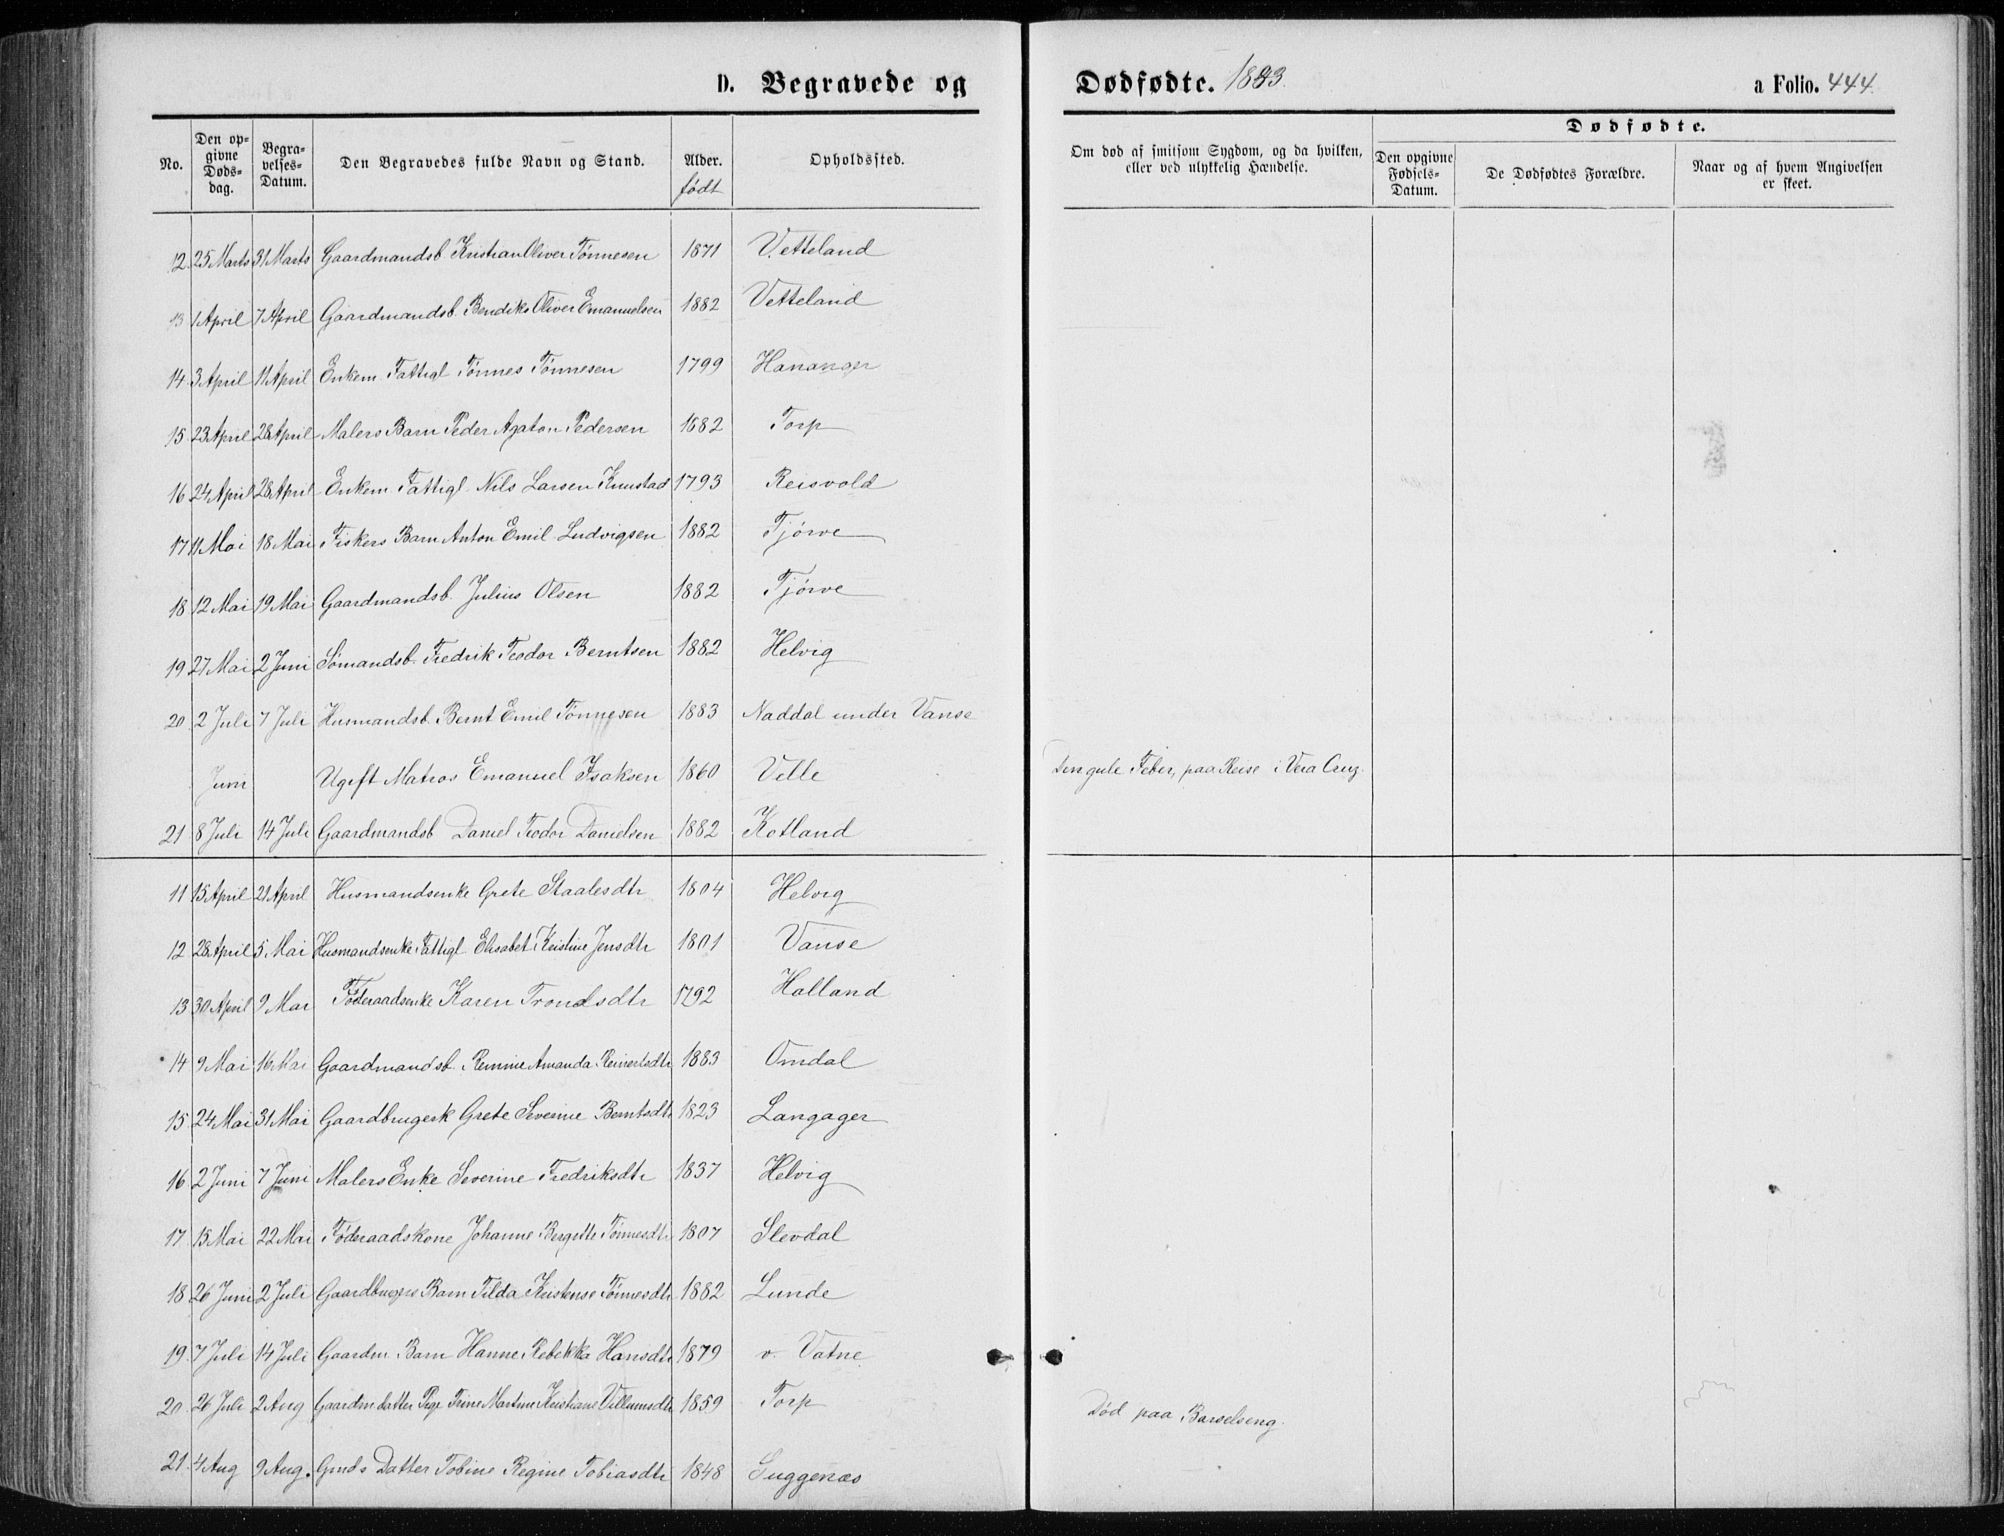 D. Begravede og Dødfødte. 1883. a Folio. 444.
No. Den opgivne Dødsdag. Begravelses-Datum. Den Begravedes fulde Navn og Stand. Alder. født Opholdssted. Om død af smitsom Sygdom, og da hvilken, eller ved ulykkelig Hændelse. Dødfødte. Den opgivne Fødsels-Datum. De Dødfødtes Forældre. Naar og af hvem Angivelsen er skeet.
12 25 Marts 31 Marts Gaardmandsb. Kristian Oliver Tønnesen 1871 Vetteland
13 1 April 7 April Gaardmandsb. Bendiks Oliver Emanuelsen 1882 Vetteland
14 3 April 11 April Enkem. Fattigl Tønnes Tønnesen 1799 Hananger
15 23 April 28 April Malers Barn Peder Agaton Pedersen 1882 Torp
16 24 April 28 April Enkem. Fattigl. Nils Larsen Knustad 1793 Reisvold
17 11 Mai 18 Mai Fiskers Barn Anton Emil Ludvigsen 1882 Tjørve
18 12 Mai 19 Mai Gaardmandsb. Julius Olsen 1882 Tjørve
19 27 Mai 2 Juni Sømandsb. Fredrik Teodor Berntsen 1882 Helvig
20 2 Juli 7 Juli Husmandsb. Bernt Emil Tønnesen 1883 Naddal under Vanse
Juni Ugift Matros Emanuel Isaksen 1860 Velle Den gule Feber, paa Reise i Vera Cruz.
21 8 Juli 14 Juli Gaardmandsb Daniel Teodor Danielsen 1882 Kotland
11 15 April 21 April Husmandsenke Grete Staalesdtr 1804 Helvig
12 28 April 5 Mai Husmandsenke Fattigl. Elisabet Kristine Jensdtr 1801 Vanse
13 30 April 9 Mai Føderaadsenke Karen Trondsdtr 1792 Halland
14 9 Mai 16 Mai Gaardmandsb. Remine Amanda Reinertsdtr 1883 Omdal
15 24 Mai 31 Mai Gaardbrugersk Grete Severine Berntsdtr 1823 Langager
16 2 Juni 7 Juni Malers Enke Severine Fredriksdtr 1837 Helvig
17 15 Mai 22 Mai Føderaadskone Johanne Bergitte Tønnesdtr 1807 Slevdal
18 26 Juni 2 Juli Gaardbrugers Barn Tilda Kristense Tønnesdtr 1882 Lunde
19 7 Juli 14 Juli Gaardm. Barn Hanne Rebekka Hansdtr 1879 v. Vatne
20 26 Juli 2 Aug Gaardm datter Pige Trine Martine Kristiane Villumsdtr 1859 Torp Død paa Barselseng.
21 4 Aug 9 Aug. Gmds Datter Tobine Regine Tobiasdtr 1848 Guggenæs